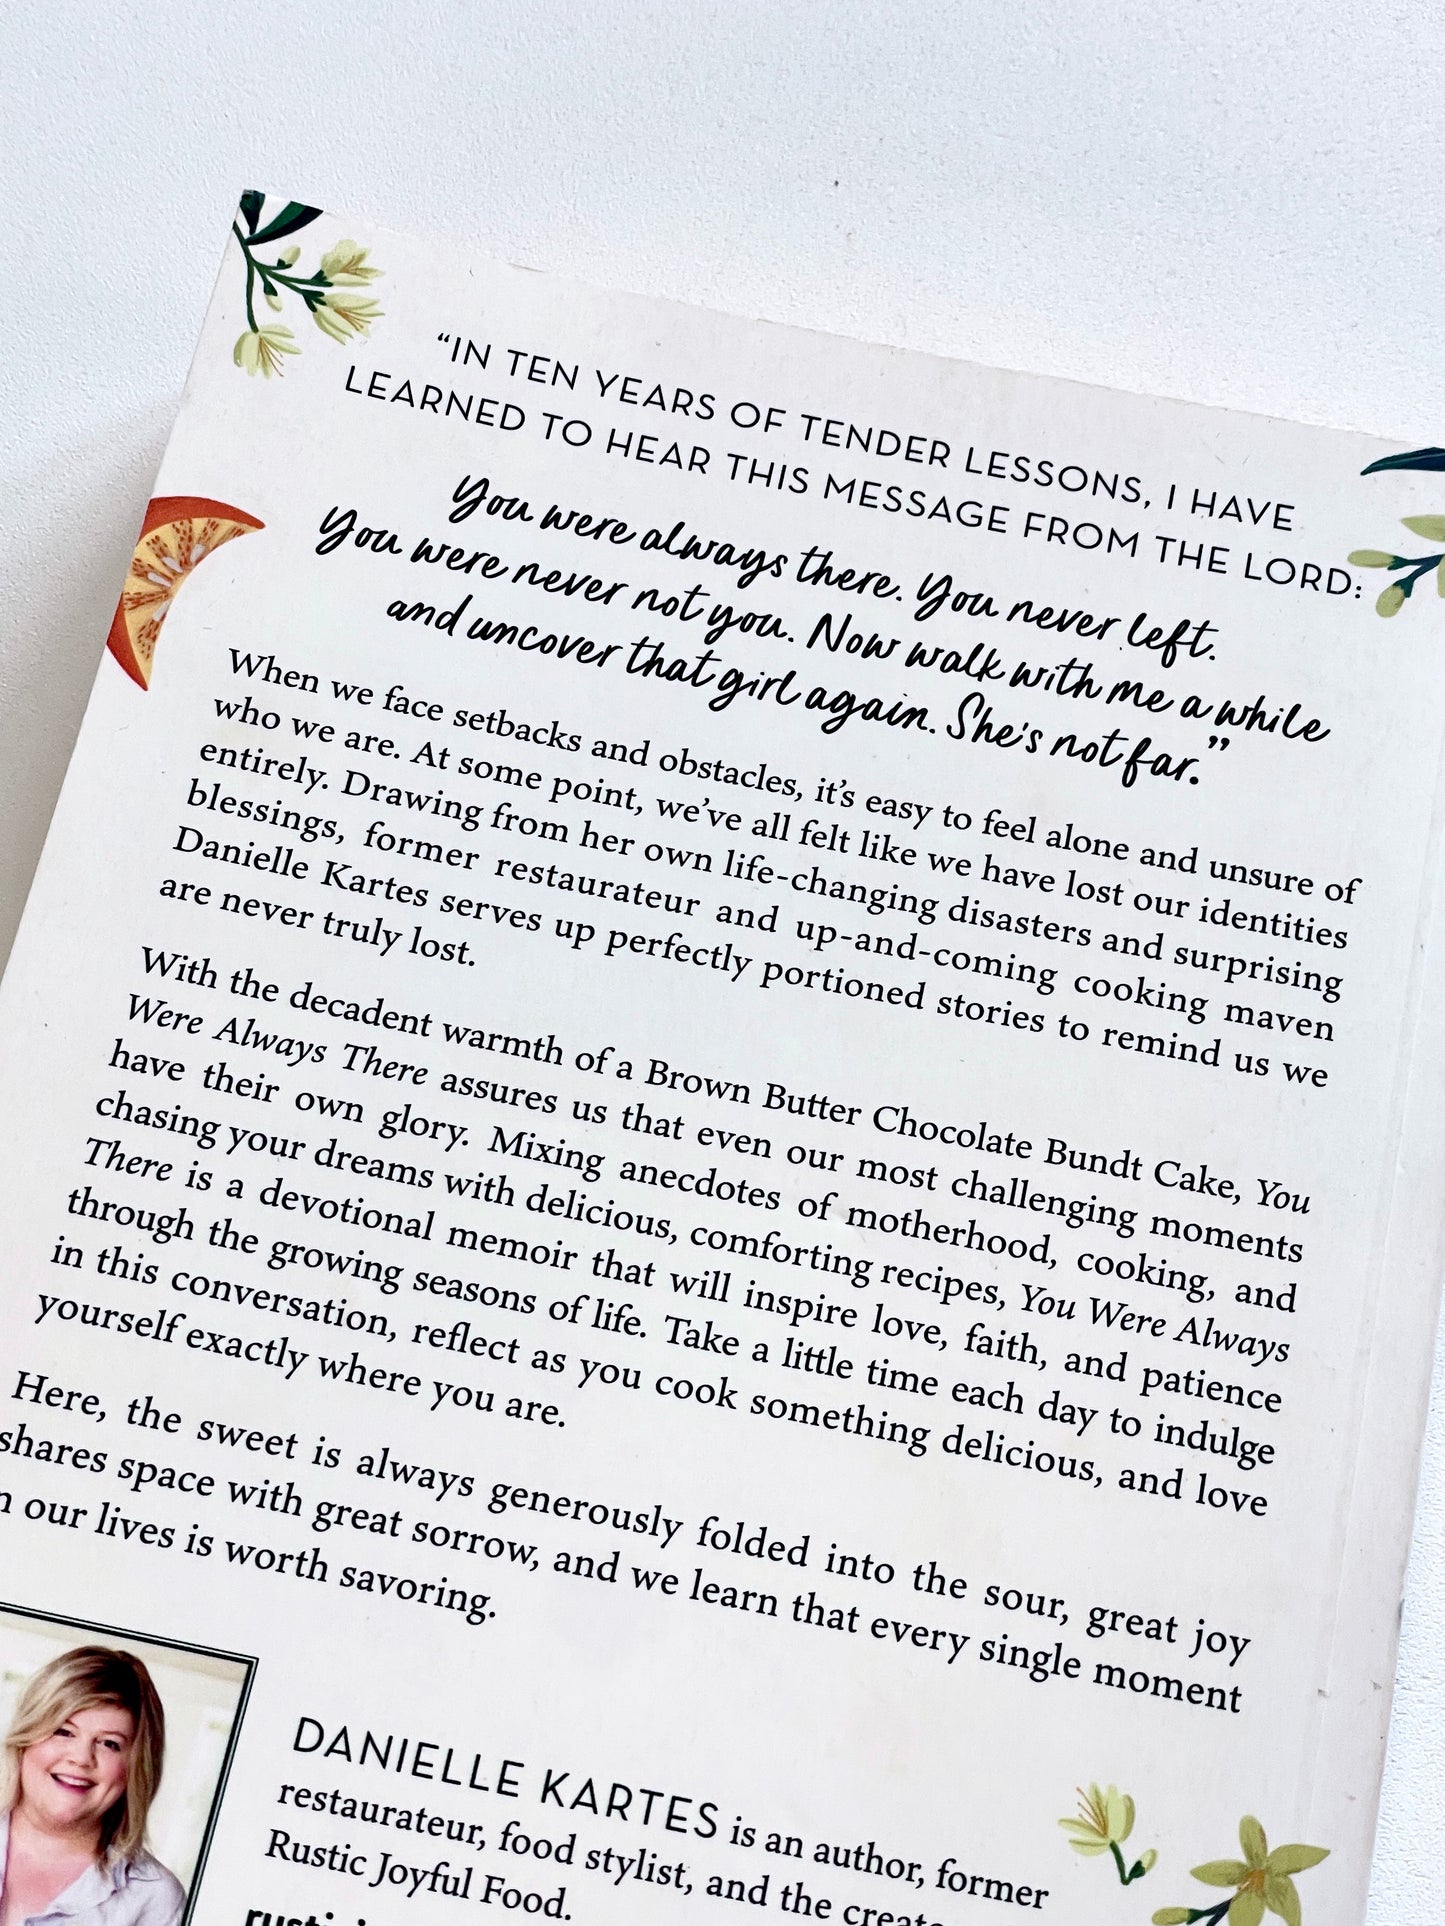 “IN TEN YEARS OF TENDER LESSONS, I HAVE
LEARNED TO HEAR THIS MESSAGE FROM THE LORD:
You were always there. You never left.
You were never not you. Now walk with me a while
and uncover that girl again. She's not far.”
When we face setbacks and obstacles, it’s easy to feel alone and unsure of
who we are. At some point, we’ve all felt like we have lost our identities
entirely. Drawing from her own life-changing disasters and surprising
blessings, former restaurateur and up-and-coming cooking maven
Danielle Kartes serves up perfectly portioned stories to remind us we
are never truly lost.
With the decadent warmth of a Brown Butter Chocolate Bundt Cake, You
Were Always There assures us that even our most challenging moments
have their own glory. Mixing anecdotes of motherhood, cooking, and
chasing your dreams with delicious, comforting recipes, You Were Always
There is a devotional memoir that will inspire love, faith, and patience
through the growing seasons of life. Take a little time each day to indulge
in this conversation, reflect as you cook something delicious, and love
yourself exactly where you are.
Here, the sweet is always generously folded into the sour, great joy
shares space with great sorrow, and we learn that every single moment
our lives is worth savoring.
DANIELLE KARTES is an author, former
restaurateur, food stylist, and the
Rustic Joyful Food.